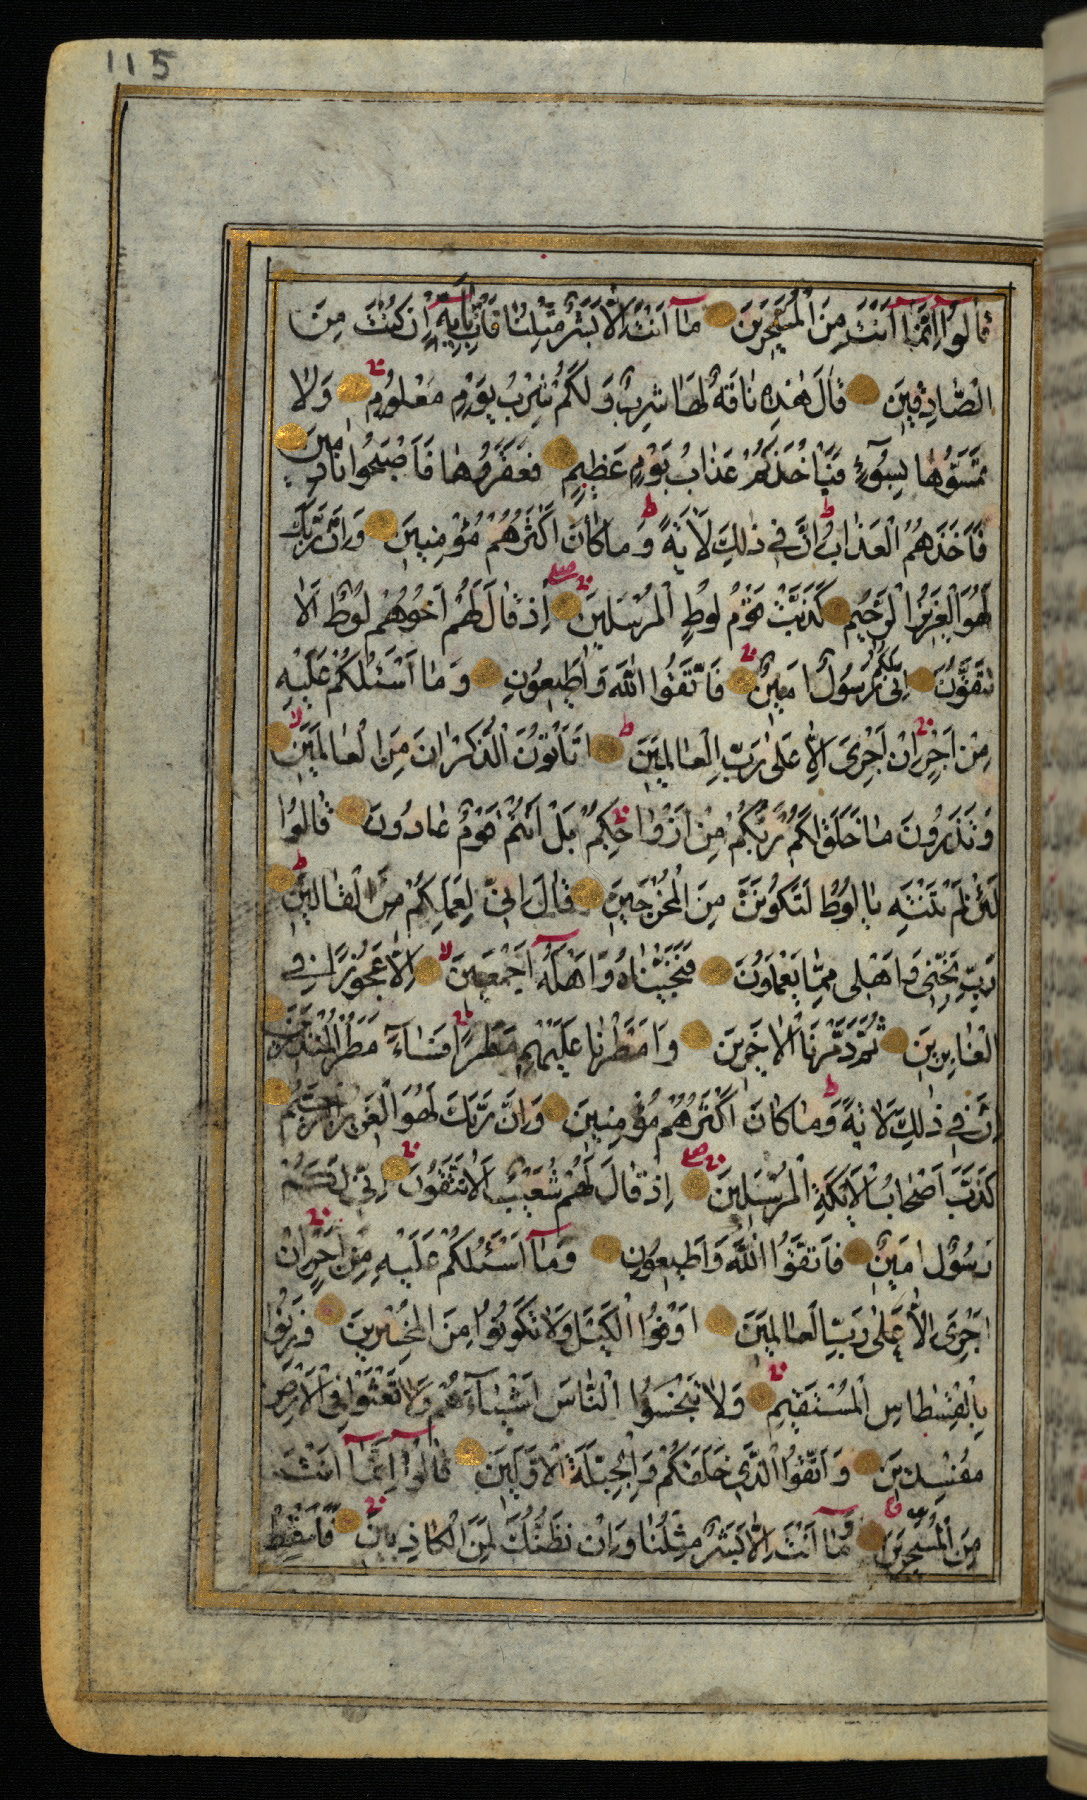 115
قَالُوا إِنَّمَا أَنْتَ مِنَ الْمُسَحَّرِينَ مَا أَنْتَ إِلَّا بَشَرٌ مِثْلُنَا فَأْتِ بِآيَةٍ إِنْ كُنْتَ مِنَ
الصَّادِقِينَ قَالَ هٰذِهِ نَاقَةٌ لَهَا شِرْبٌ وَلَكُمْ شِرْبُ يَوْمٍ مَعْلُومٍ وَلَا
تَمَسُّوهَا بِسُوءٍ فَيَأْخُذَكُمْ عَذَابُ يَوْمٍ عَظِيمٍ فَعَقَرُوهَا فَأَصْبَحُوا نَادِمِينَ
فَأَخَذَهُمُ الْعَذَابُ إِنَّ فِي ذٰلِكَ لَآيَةً وَمَا كَانَ أَكْثَرُهُمْ مُؤْمِنِينَ وَإِنَّ رَبَّكَ
لَهُوَ الْعَزِيزُ الرَّحِيمُ كَذَّبَتْ قَوْمُ لُوطٍ الْمُرْسَلِينَ إِذْ قَالَ لَهُمْ أَخُوهُمْ لُوطٌ أَلَا
تَتَّقُونَ إِنِّي لَكُمْ رَسُولٌ أَمِينٌ فَاتَّقُوا اللّٰهَ وَأَطِيعُونِ وَمَا أَسْئَلُكُمْ عَلَيْهِ
مِنْ أَجْرٍ إِنْ أَجْرِيَ إِلَّا عَلَى رَبِّ الْعَالَمِينَ أَتَأْتُونَ الذُّكْرَانَ مِنَ الْعَالَمِينَ
وَتَذَرُونَ مَا خَلَقَ لَكُمْ رَبُّكُمْ مِنْ أَزْوَاجِكُمْ بَلْ أَنْتُمْ قَوْمٌ عَادُونَ قَالُوا
لَئِنْ لَمْ تَنْتَهِ يَا لُوطُ لَتَكُونَنَّ مِنَ الْمُخْرَجِينَ قَالَ إِنِّي لِعَمَلِكُمْ مِنَ الْقَالِينَ
رَبِّ نَجِّنِي وَأَهْلِي مِمَّا يَعْمَلُونَ فَنَجَّيْنَاهُ وَأَهْلَهُ أَجْمَعِينَ إِلَّا عَجُوزًا فِي
الْغَابِرِينَ ثُمَّ دَمَّرْنَا الْآخَرِينَ وَأَمْطَرْنَا عَلَيْهِمْ مَطَرًا فَسَاءَ مَطَرُ الْمُنْذَرِينَ
إِنَّ فِي ذٰلِكَ لَآيَةً وَمَا كَانَ أَكْثَرُهُمْ مُؤْمِنِينَ وَإِنَّ رَبَّكَ لَهُوَ الْعَزِيزُ الرَّحِيمُ
كَذَّبَ أَصْحَابُ الْأَيْكَةِ الْمُرْسَلِينَ إِذْ قَالَ لَهُمْ شُعَيْبٌ أَلَا تَتَّقُونَ إِنِّي لَكُمْ
رَسُولٌ أَمِينٌ فَاتَّقُوا اللّٰهَ وَأَطِيعُونِ وَمَا أَسْئَلُكُمْ عَلَيْهِ مِنْ أَجْرٍ إِنْ
أَجْرِيَ إِلَّا عَلَى رَبِّ الْعَالَمِينَ أَوْفُوا الْكَيْلَ وَلَا تَكُونُوا مِنَ الْمُخْسِرِينَ وَزِنُوا
بِالْقِسْطَاسِ الْمُسْتَقِيمِ وَلَا تَبْخَسُوا النَّاسَ أَشْيَاءَهُمْ وَلَا تَعْثَوْا فِي الْأَرْضِ
مُفْسِدِينَ وَاتَّقُوا الَّذِي خَلَقَكُمْ وَالْجِبِلَّةَ الْأَوَّلِينَ قَالُوا إِنَّمَا أَنْتَ
مِنَ الْمُسَحَّرِينَ وَمَا أَنْتَ إِلَّا بَشَرٌ مِثْلُنَا وَإِنْ نَظُنُّكَ لَمِنَ الْكَاذِبِينَ فَأَسْقِطْ